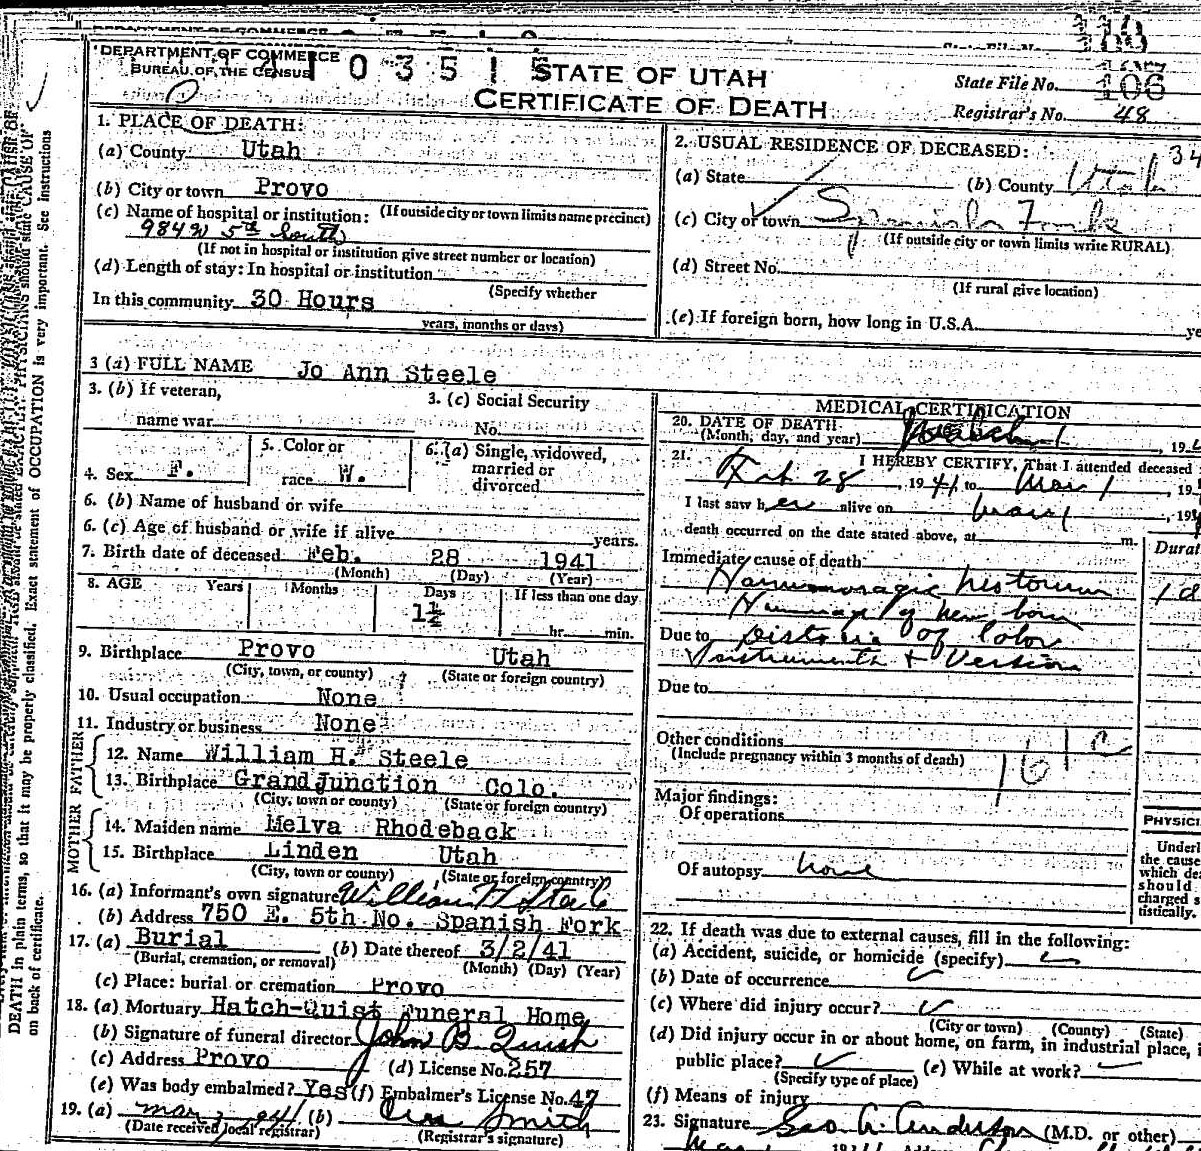 DEPARTMENT OF COMMERCE
BUREAU OF THE CENSUS
STATE OF UTAH
CERTIFICATE OF DEATH
State File No. 106
Registrar's No. 48
1. PLACE OF DEATH:
(a) County Utah
(b) City or town Provo
(c) Name of hospital or institution: (If outside city or town limits name precinct)
984 W 5th South
(If not in hospital or institution give street number or location)
(d) Length of stay: In hospital or institution
(Specify whether
In this community 30 Hours
years, months or days)
2. USUAL RESIDENCE OF DECEASED: 34
(a) State (b) County Utah
(c) City or town Spanish Fork
(If outside city or town limits write RURAL)
(d) Street No.
(If rural give location)
(e) If foreign born, how long in U.S.A. ye
3 (a) FULL NAME Jo Ann Steele
3. (b) If veteran,
name war
3. (c) Social Security
No.
4. Sex F.
5. Color or
race W.
6. (a) Single, widowed,
married or
divorced
6. (b) Name of husband or wife
6. (c) Age of husband or wife if alive years.
7. Birth date of deceased Feb. 28 1941
(Month) (Day) (Year)
8. AGE Years Months Days If less than one day
1½
hr. min.
9. Birthplace Provo Utah
(City, town, or county) (State or foreign country)
10. Usual occupation None
11. Industry or business None
FATHER
12. Name William H. Steele
13. Birthplace Grand Junction Colo.
(City, town or county) (State or foreign country)
MOTHER
14. Maiden name Melva Rhodeback
15. Birthplace Linden Utah
(City, town or county) (State or foreign country)
16. (a) Informant's own signature William H Steele
(b) Address 750 E. 5th No. Spanish Fork
17. (a) Burial (b) Date thereof 3/2/41
(Burial, cremation, or removal) (Month) (Day) (Year)
(c) Place: burial or cremation Provo
18. (a) Mortuary Hatch-Quist Funeral Home
(b) Signature of funeral director John B Quist
(c) Address Provo (d) License No. 257
(e) Was body embalmed? Yes (f) Embalmer's License No. 47
19. (a) Mar 1941 (b) Smith
(Date received local registrar) (Registrar's signature)
MEDICAL CERTIFICATION
20. DATE OF DEATH
(Month, day, and year) March 1, 19
21. I HEREBY CERTIFY, That I attended deceased
Feb 28, 1941 to Mar 1, 19
I last saw her alive on Mar 1, 19
death occurred on the date stated above, at m.
Immediate cause of death
Durat
of new born
1 d
Due to
Instruments + Version
Due to
Other conditions
(Include pregnancy within 3 months of death)
Major findings:
Of operations
Of autopsy none
PHYSICI
Underl
the cause
which de
should
charged s
tistically.
22. If death was due to external causes, fill in the following:
(a) Accident, suicide, or homicide (specify)
(b) Date of occurrence
(c) Where did injury occur?
(City or town) (County) (State)
(d) Did injury occur in or about home, on farm, in industrial place, i
public place? (e) While at work?
(Specify type of place)
(f) Means of injury
23. Signature Geo. A. Anderson (M.D. or other)
DEATH in plain terms, so that it may be properly classified. Exact statement of OCCUPATION is very important. See instructions
on back of certificate.